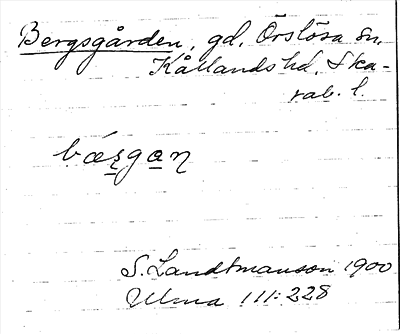 Bergsgården, gd, Örslösa sn,
Kållands hd. Ska-
rab. l.
bæʂgan
S. Landtmanson 1900
Ulma 111:228